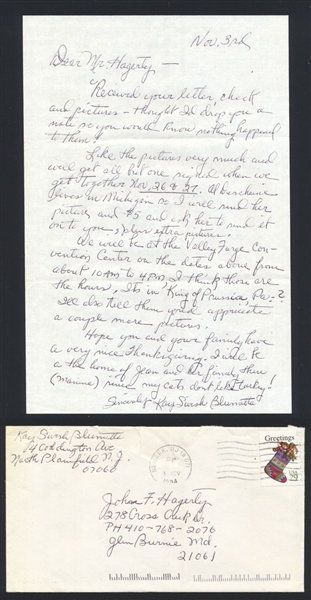 Nov. 3rd
Dear Mr Hagerty —
Received your letter, check
and pictures – thought I'd drop you a
note so you would know nothing happened
to them!
Like the pictures very much and
we'll get all but one signed when we
get together Nov. 26 & 27.
lives in Michigan so I will send her
picture and $5 and ask her to send it
on to you, plus extra pictures.
We will be at the Valley Forge Con-
vention Center on the dates above from
about 10 AM to 4 PM I think those are
the hours. It's in King of Prussia, Pa.
I'll also tell them you'd appreciate
a couple more pictures.
Hope you and your family have
a very nice Thanksgiving. I will be
at the home of Jean and her family there
(Marine) since my cats don't like turkey!
Sincerely – Kay Swash Blumetta
Kay Swash Blumetta
14 Coddington Ave
North Plainfield N.J.
07060
Greetings
USA
29
John F. Hagerty
278 Cross Creek Dr.
PH 410-768-2076
Glen Burnie Md.
21061